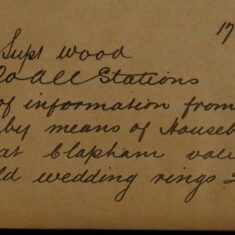 17
Supt Wood
To All Stations
of information from
by means of Houseb
at Clapham val
ld wedding rings